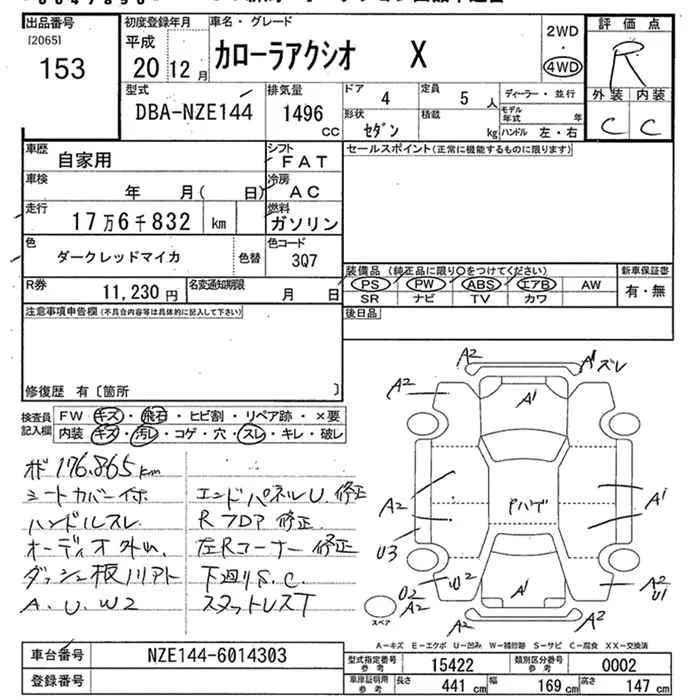 出品番号
[2065]
153
初度登録年月
平成
20 12月
車名・グレード
カローラアクシオ X
2WD
・
4WD
評価点
R
外装 内装
C C
型式
DBA-NZE144
排気量
1496
CC
ドア
4
定員
5 人
ディーラー・並行
モデル年式 年
形状
セダン
積載
kg
ハンドル 左・右
車歴
自家用
シフト
FAT
車検
年 月( 日)
冷房
AC
走行
17万6千832 km
燃料
ガソリン
色
ダークレッドマイカ
色替
色コード
3Q7
R券
11,230 円
名変通知期限
月 日
セールスポイント(正常に機能するものに限ります)
装備品 (純正品に限り○をつけてください)
PS PW ABS エアB AW
SR ナビ TV カワ
新車保証書
有・無
後日品
注意事項申告欄(不具合内容等は具体的に記入して下さい)
修復歴 有〔箇所 〕
検査員記入欄
FW キズ・飛石・ヒビ割・リペア跡・×要
内装 キズ・汚レ・コゲ・穴・スレ・キレ・破レ
176.865km
シートカバー付
ハンドルスレ
オーディオ外ム
ダッシュ板
A.U.W2
エンドパネルU.修正
Rフロア修正
左Rコーナー修正
下廻りS.C.
スタットレスT
A2
A1 ズレ
A2
A1
A2
A2
A1
ハゲ
U3
U2
A2
W2
A1
A2
A2
U1
スペア
A-キズ E-エクボ U-凹み W-補修跡 S-サビ C-腐食 XX-交換済
車台番号
NZE144-6014303
登録番号
型式指定番号 参考
15422
類別区分番号 参考
0002
車庫証明用 参考
長さ 441 cm
幅 169 cm
高さ 147 cm